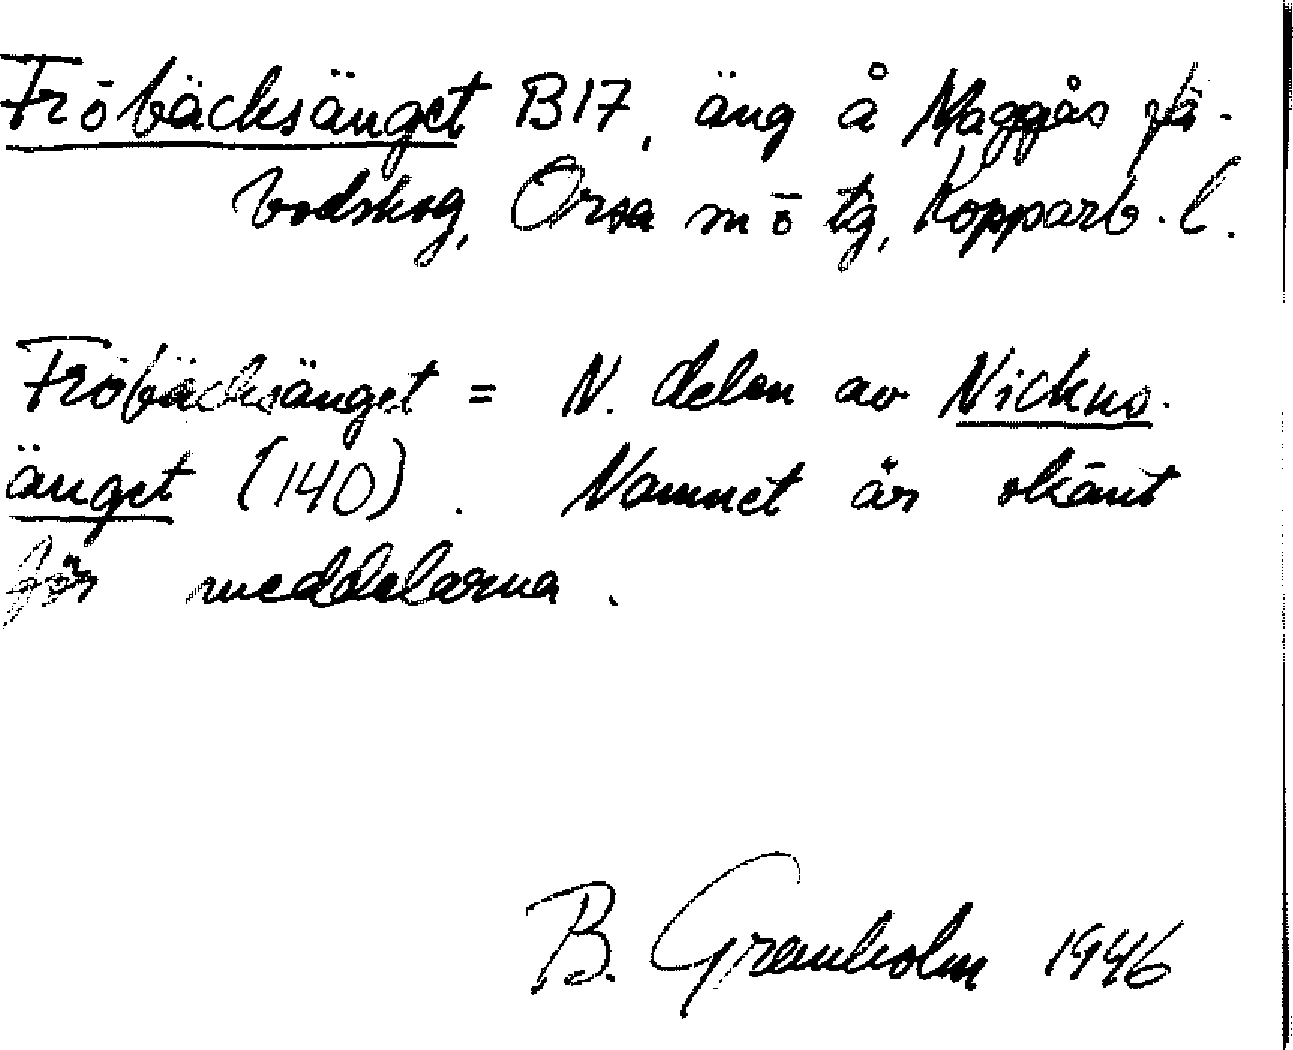 Fröbäcksänget B17, äng å Maggås fä-
bodskog, Orsa sn o tg, Kopparb. l.
Fröbäcksänget = N. delen av Nickus-
änget (140). Namnet är okänt
för meddelarna.
B. Granholm 1946